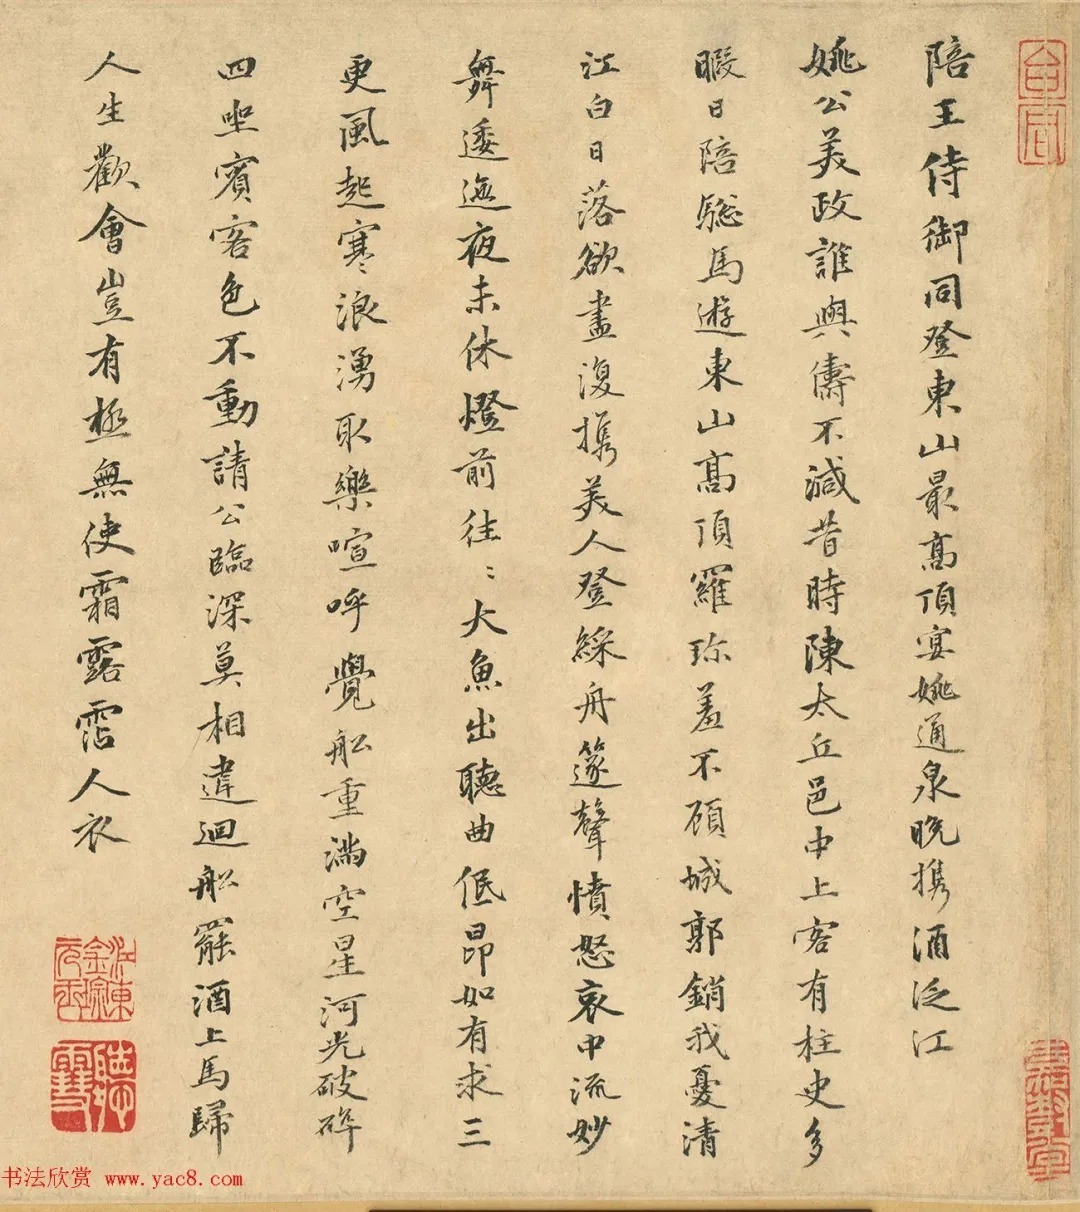 陪王侍御同登東山最高頂宴姚通泉晚携酒泛江
姚公美政誰與儔不減昔時陳太丘邑中上客有柱史多
暇日陪驄馬遊東山高頂羅珎羞不顧城郭銷我憂清
江白日落欲盡復携美人登綵舟篴聲憤怒哀中流妙
舞逶迤夜未休燈前往〻大魚出聽曲低昂如有求三
更風起寒浪湧取樂喧呼覺舩重滿空星河光破碎
四坐賓客色不動請公臨深莫相違迴舩罷酒上馬歸
人生歡會豈有極無使霜露霑人衣
書法欣赏 www.yac8.com